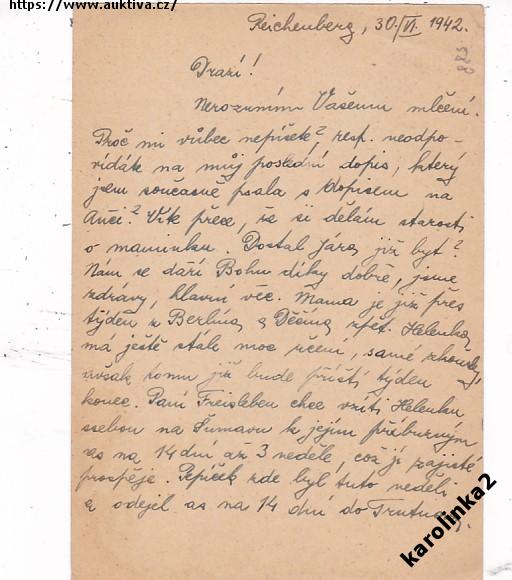 https://www.auktiva.cz/
Reichenberg, 30./VI. 1942.
883
Drazí!
Nerozumím Vašemu mlčení.
Proč mi vůbec nepíšeš? resp. neodpo-
vídáš na můj poslední dopis, který
jsem současně psala s dopisem na
Anči? Víš přece, že si dělám starosti
o maminku. Dostal Jára již byt?
Nám se daří Bohu díky dobře, jsme
zdrávy, hlavní věc. Mama je již přes
týden z Berlína a Děčína zpět. Helenka
má ještě stále moc učení, samé zkoušky,
avšak tomu již bude příští týden
konec. Paní Freisleben chce vzíti Helenku
ssebou na Šumavu k jejím příbuzným
as na 14 dní až 3 neděle, což jí zajisté
prospěje. Pepíček zde byl tuto neděli
a odejel as na 14 dní do Trutnova.
karolinka2